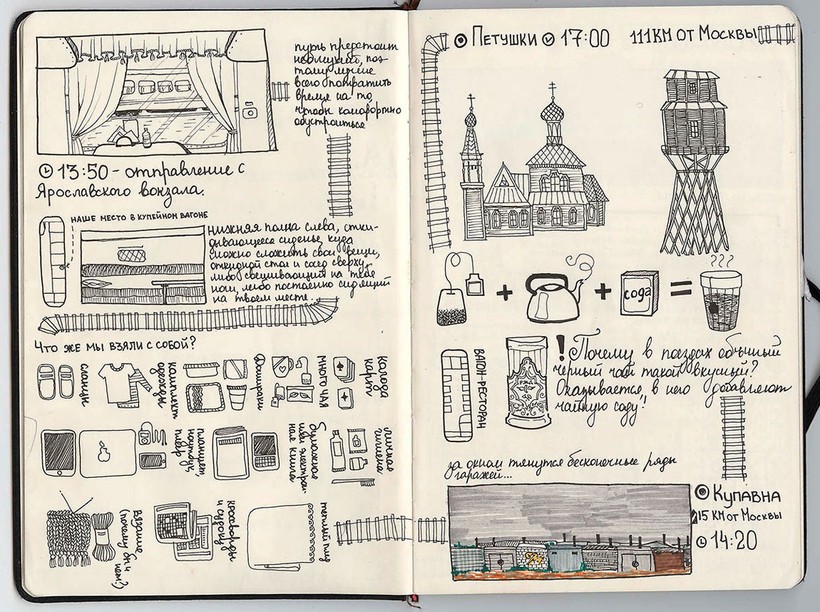 путь предстоит
неблизкий, поэ-
тому лучше
всего потратить
время на то,
чтобы комфортно
обустроиться
13:50 - отправление с
Ярославского вокзала.
НАШЕ МЕСТО В КУПЕЙНОМ ВАГОНЕ
нижняя полка слева, отки-
дывающееся сиденье, куда
можно сложить свои вещи,
откидной стол и сосед сверху,
либо свешивающий на тебя
ноги, либо постоянно сидящий
на твоем месте.
Что же мы взяли с собой?
сланцы
комплект
одежды
Дошираки
много чая
колода
карт
планшет
ноутбук
плеер
бумажная
или электрон-
ная книга
личная
гигиена
вязание
(почему бы и
нет?)
кроссворды
и судоку
теплый плед
Петушки 17:00 111 км от Москвы
+ + сода =
ВАГОН-РЕСТОРАН
! Почему в поездах обычный
черный чай такой вкусный?
Оказывается, в него добавляют
чайную соду!
за окном тянутся бесконечные ряды
гаражей...
Купавна
15 км от Москвы
14:20